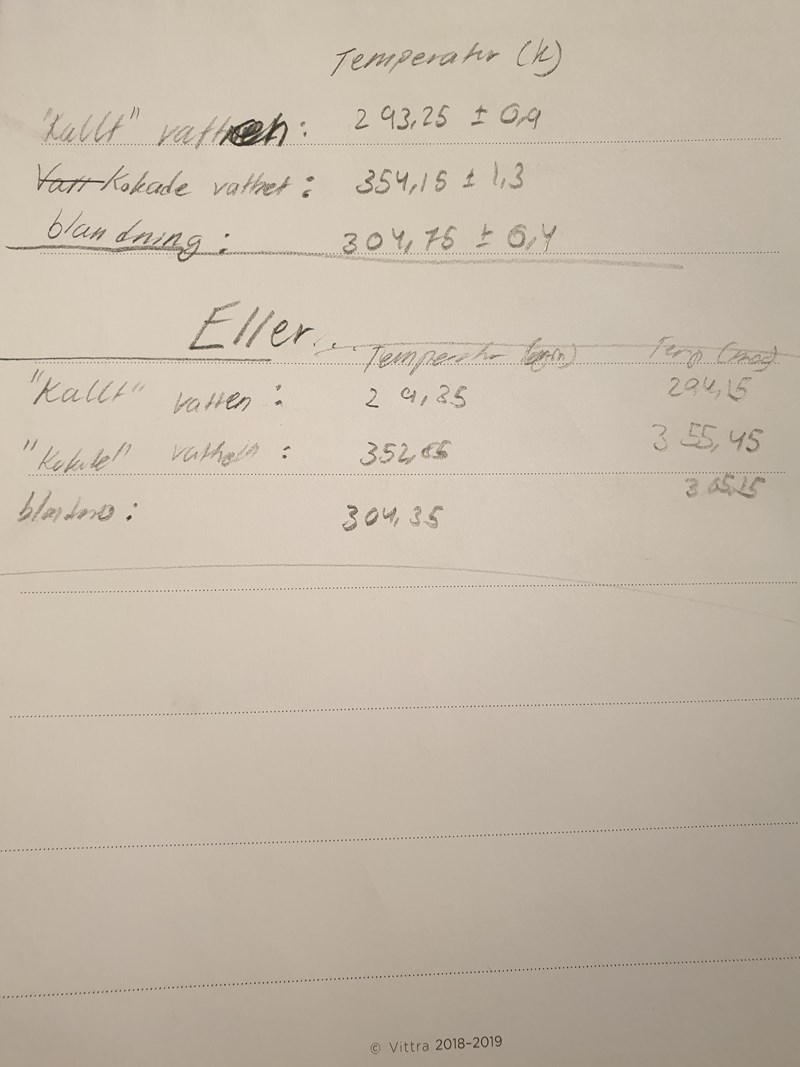 Temperatur (K)
"Kallt" vatten: 293,25 ± 0,9
Kokade vattnet: 354,15 ± 1,3
blandning: 304,75 ± 0,4
Eller...
Temperatur (min) Temp (max)
"Kallt" vatten: 29,35 294,15
"Kokade" vattnet: 355,45
305,15
304,35
© Vittra 2018-2019